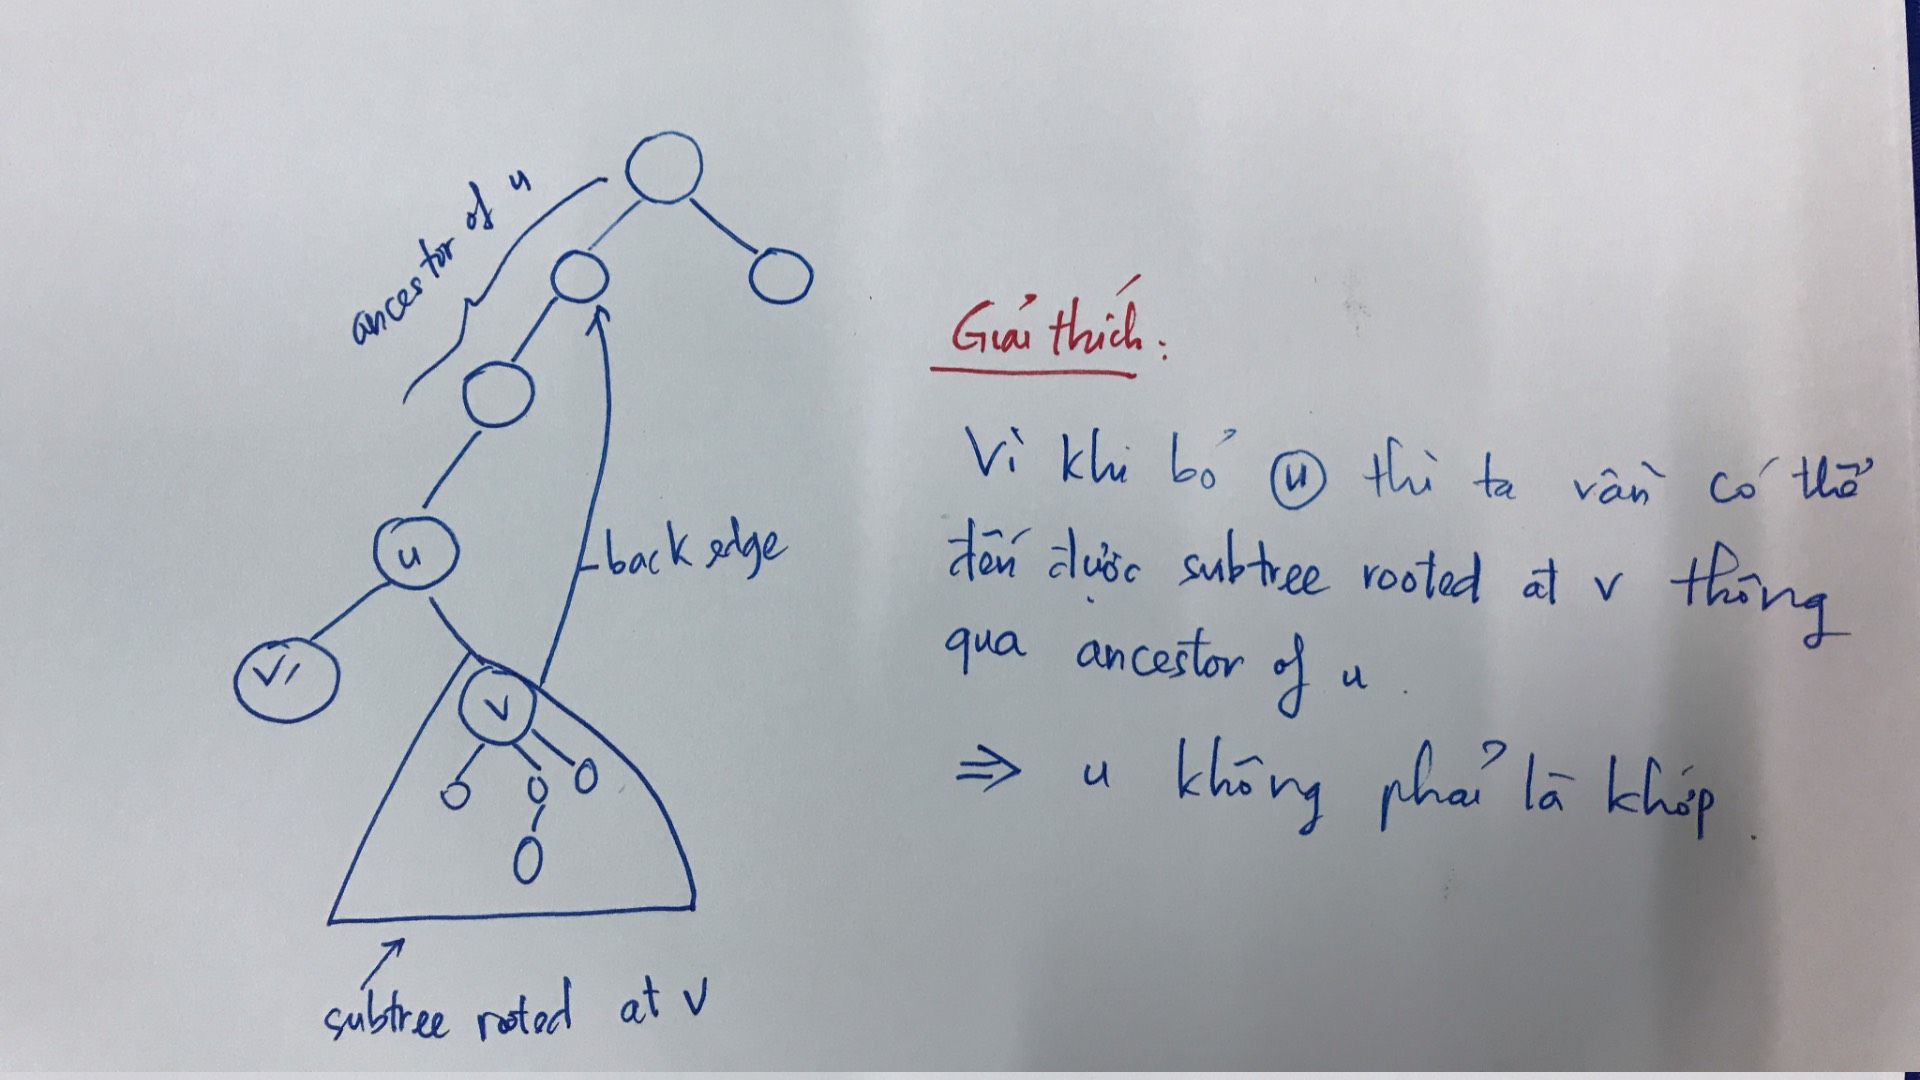 ancestor of u
u
back edge
V1
v
subtree rooted at v
Giải thích:
Vì khi bỏ u thì ta vẫn có thể
đến được subtree rooted at v thông
qua ancestor of u.
⇒ u không phải là khớp.